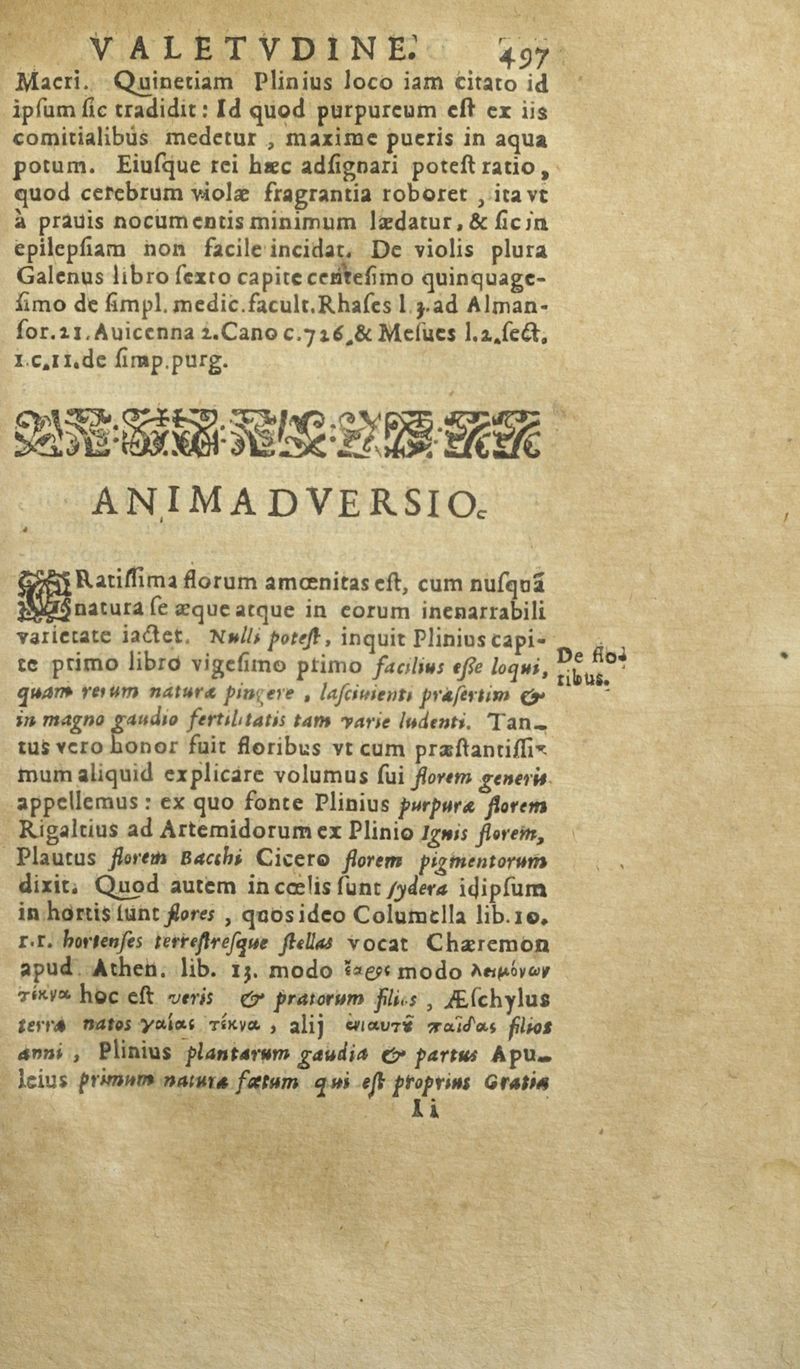 VALETVDINE. 497
Macri. Quinetiam Plinius loco iam citato id
ipſum ſic tradidit: Id quod purpureum eſt ex iis
comitialibus medetur, maxime pueris in aqua
potum. Eiuſque rei hæc adſignari poteſt ratio,
quod cerebrum violæ fragrantia roboret, ita vt
à prauis nocumentis minimum lædatur, & ſic in
epilepſiam non facile incidat. De violis plura
Galenus libro ſexto capite centeſimo quinquage-
ſimo de ſimpl. medic. facult. Rhaſes l. 3. ad Alman-
ſor. 21. Auicenna 2. Cano c. 726, & Meſues l. 2. ſect.
1. c. 11. de ſimp. purg.
ANIMADVERSIO.
GRatiſſima florum amœnitas eſt, cum nuſquã
natura ſe æque atque in eorum inenarrabili
varietate iactet. Nulli poteſt, inquit Plinius capi-
te primo libro vigeſimo primo facilius eſſe loqui,
De flo-
ribus.
quam rerum naturæ pingere, laſciuienti præſertim &
in magno gaudio fertilitatis tam varie ludenti. Tan-
tus vero honor fuit floribus vt cum præſtantiſſi-
mum aliquid explicare volumus ſui florem generis
appellemus: ex quo fonte Plinius purpuræ florem
Rigaltius ad Artemidorum ex Plinio Ignis florem,
Plautus florem Bacchi Cicero florem pigmentorum
dixit. Quod autem in cœlis ſunt ſydera idipſum
in hortis ſunt flores, quos ideo Columella lib. 10.
r.r. hortenſes terreſtreſque ſtellas vocat Chæremon
apud Athen. lib. 13. modo ἔαρος modo λειμώνων
τέκνα hoc eſt veris & pratorum filios, Æſchylus
terra natos γαίας τέκνα, alij ἐνιαυτȣ παῖδας filios
anni, Plinius plantarum gaudia & partus Apu-
leius primum naturæ fœtum qui eſt proprius Gratiæ
Ii